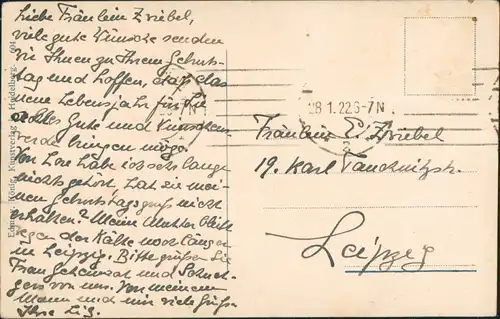 Liebe Fräulein Zwiebel,
viele gute Wünsche senden
wir Ihnen zu Ihrem Geburts-
tag und hoffen, daß das
neue Lebensjahr für Sie
alles Gute und
bringen möge.
Von Lore habe ich so lange
nichts gehört. Hat sie mei-
nen Geburtstagsgruß nicht
erhalten? Meine Mutter bleibt
wegen der Kälte noch länger
in Leipzig. Bitte grüßen Sie
Frau und
von uns. Von meinem
Mann und mir viele Grüße
Ihre
Edm. König, Kunstverlag Heidelberg.
28.1.22 6-7 N.
Fräulein E. Zwiebel
19. Karl Tauchnitzstr.
Leipzig